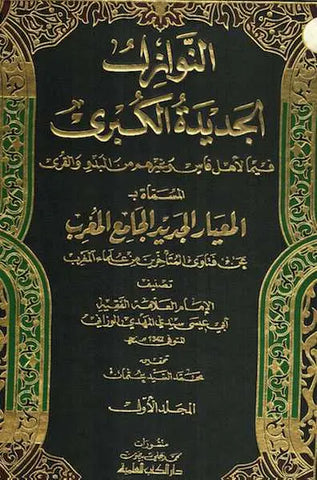 النوازل
الجديدة الكبرى
فيما لأهل فاس وغيرهم من البدو والقرى
المسماة بـ
المعيار الجديد الجامع المعرب
عن فتاوى المتأخرين من علماء المغرب
تصنيف
الإمام العلامة الفقيه
أبي عيسى سيدي المهدي الوزاني
المتوفى ١٣٤٢ هـ
تحقيق
محمد السيد عثمان
المجلد الأول
منشورات
محمد علي بيضون
دار الكتب العلمية